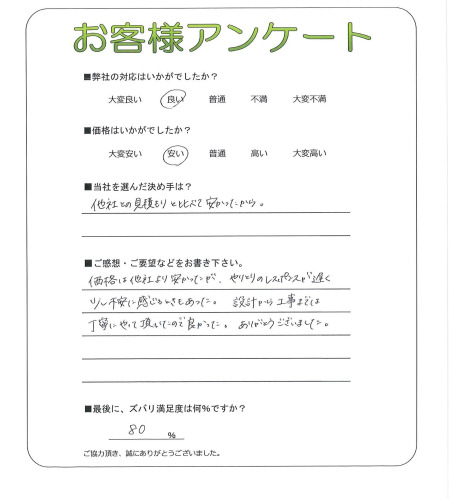 お客様アンケート
■弊社の対応はいかがでしたか？
大変良い 良い 普通 不満 大変不満
■価格はいかがでしたか？
大変安い 安い 普通 高い 大変高い
■当社を選んだ決め手は？
他社との見積もりと比べて安かったから。
■ご感想・ご要望などをお書き下さい。
価格は他社より安かったが、やりとりのレスポンスが遅く
少し不安に感じるときもあった。 設計から工事までは
丁寧にやって頂いたので良かった。ありがとうございました。
■最後に、ズバリ満足度は何%ですか？
80 %
ご協力頂き、誠にありがとうございました。